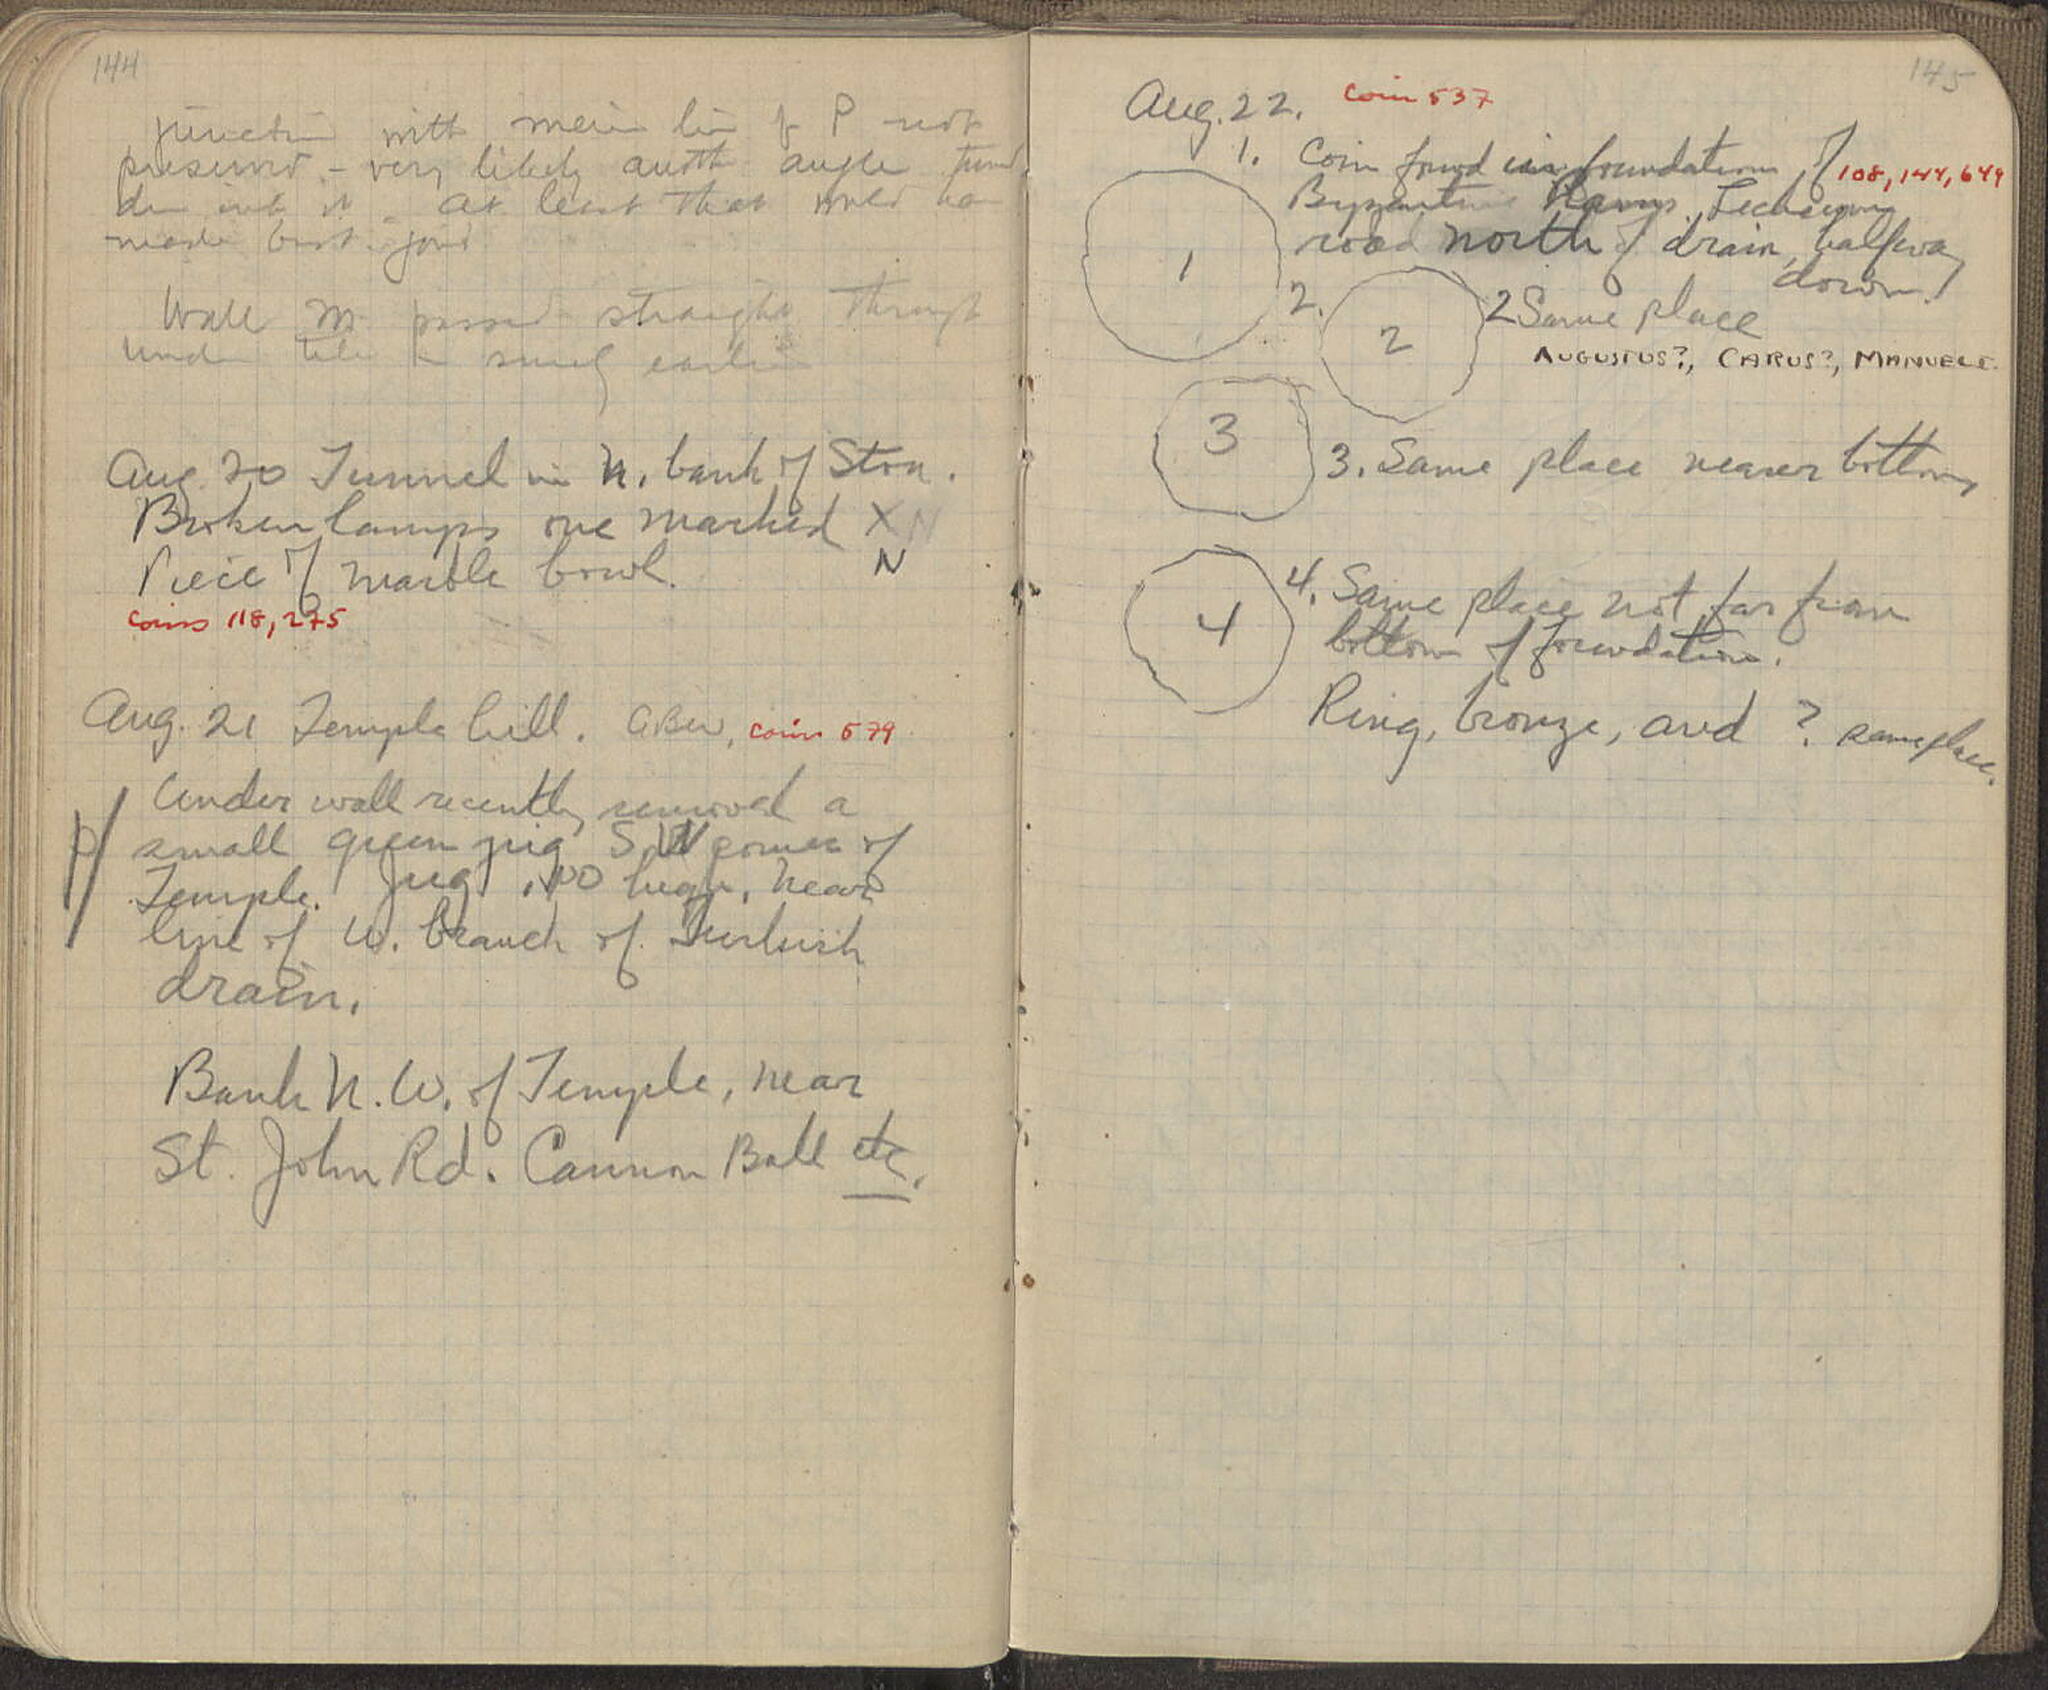 144
junction with main line of P not
preserved - very likely another angle
it. At least that would
made best
Wall passed straight through
under
Aug. 20 Tunnel in N. bank of Stoa.
Broken lamps one marked X N
N
Piece of marble bowl.
Coins 118, 275
Aug. 21 Temple hill. GBW, coin 579
Under wall recently removed a
P small green jug S.W corner of
Temple. Jug .100 high, near
line of W. branch of Turkish
drain.
Bank N.W. of Temple, near
St. John Rd. Cannon Ball etc.
145
Aug. 22. Coin 537
1. Coin found in foundation of 108, 144, 649
Byzantine Lechaeum
road north of drain, halfway
down.
1
2. 2 2 Same place
AUGUSTUS?, CARUS?, MANUEL I.
3 3. Same place nearer bottom
4 4. Same place not far from
bottom of foundation.
Ring, bronze, and ? same place.